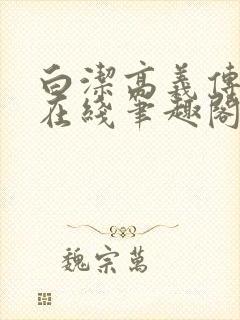 白潔高義傳
在綫筆趣閣
魏宗萬